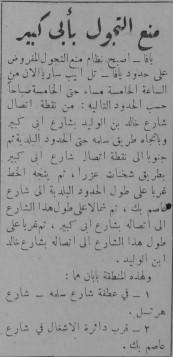 منع التجول بأبي كبير
يافا – أصبح نظام منع التجول المفروض
على حدود يافا – تل أبيب ساريا الان من
الساعة الخامسة مساء حتى الخامسة صباحا
حسب الحدود التالية : من نقطة اتصال
شارع خالد بن الوليد بشارع ابي كبير
وباتجاه طريق سلمه حتى الحدود البلدية ثم
جنوبا الى نقطة اتصال شارع ابي كبير
بطريق شخنات عزرا ، ثم يتجه الخط
غربا على طول الحدود البلدية الى شارع
عاصم بك ، ثم شمالا على طول هذا الشارع
الى اتصاله بشارع ابي كبير ، ثم غربا على
طول هذا الشارع الى اتصاله بشارع خالد
ابن الوليد .
ولهذه المنطقة بابان هما :
١ – في عطفة شارع سلمه – شارع
هرتسل .
٢ – قرب دائرة الاشغال في شارع
عاصم بك .